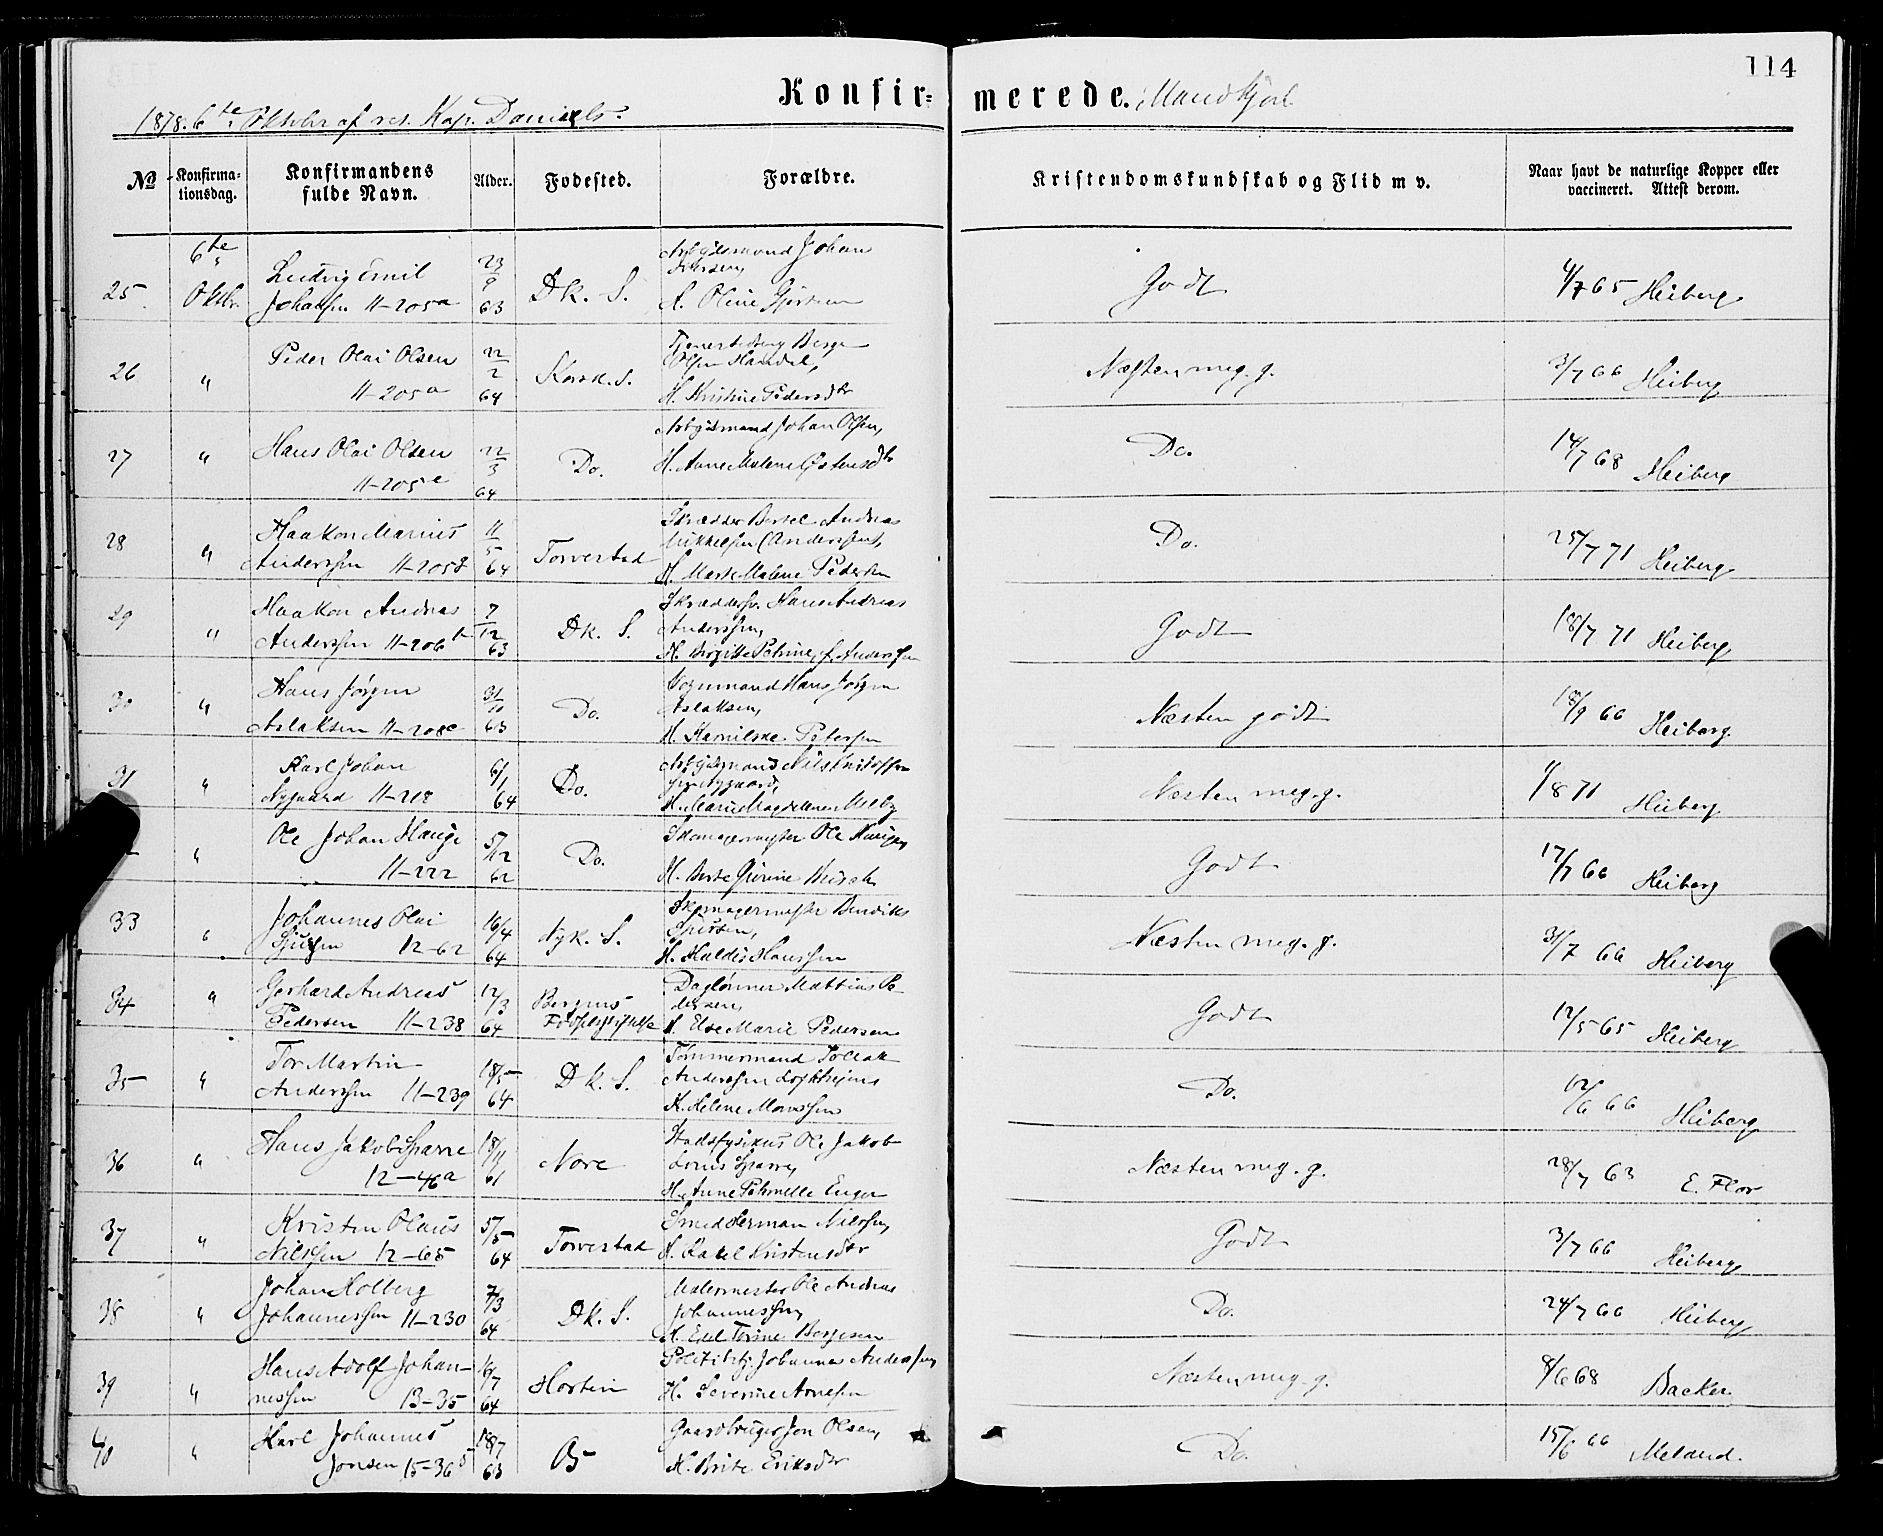 114
Konfirmerede. Mandkjøn
1878. 6te Oktober af res. Kap. Daniels.
№ Konfirmationsdag. Konfirmandens fulde Navn. Alder. Fødested. Forældre. Kristendomskundskab og Flid m v. Naar havt de naturlige Kopper eller vaccineret. Attest derom.
25 6te Oktbr. Ludvig Emil Johansen 11-205a 23/9 63 Dk. S. Arbeidsmand Johan Iversen, H. Oline Godt 4/7 65 Heiberg
26 " Peder Olai Olsen 11-205a 22/2 64 Korsk. S. Olsen H. Kristine Pedersdtr Næsten meg. g. 3/7 66 Heiberg
27 " Hans Olai Olsen 11-205c 22/3 64 Do. Arbeidsmand Johan Olsen, H. Anne Malene Do. 14/7 68 Heiberg
28 " Haakon Marius Anderssen 11-205d 11/5 64 Torvestad Skrædder Bertel Andreas Mikkelsen (Anderssen), H. Marte Malene Pedersen Do. 25/7 71 Heiberg
29 " Haakon Andreas Anderssen 11-206b 7/12 63 Dk. S. Skræddersv. Hans Andreas Anderssen, H. Birgitte Petrine f. Anderssen Godt 18/7 71 Heiberg
30 " Hans Jørgen Aslaksen 11-208c 31/10 63 Do. Vognmand Hans Jørgen Aslaksen, H. Petersen Næsten godt 18/9 66 Heiberg
31 " Karl Johan Nygaard 11-218 6/1 64 Do. Arbeidsmand Nils Nygaard, H. Marie Magdalene Næsten meg. g. 1/8 71 Heiberg
" Ole Johan Hauge 11-222 5/12 62 Do. Skomagermester Ole Hauge, H. Berte Godt 17/7 66 Heiberg
33 " Johannes Olai 12-62 16/4 64 Nyk. S. Skomagermester Bendiks H. Haldis Hanssen Næsten meg. g. 31/7 66 Heiberg
34 " Gerhard Andreas Pedersen 11-238 12/3 64 Bergens Fødselsstiftelse Daglønner Mathias Pedersen, H. Else Marie Pedersen Godt 12/5 65 Heiberg
35 " Tor Martin Anderssen 11-239 18/5 64 Dk. S. Tømmermand Tollak Anderssen H. Helene Monssen Do. 12/6 66 Heiberg
36 " Hans Jakob Sparre 12-46a 18/11 61 Nore Stadsfysikus Ole Jakob Louis Sparre, H. Anne Petronelle Enger Næsten meg. g. 28/7 63 E. Flor
37 " Kristen Olaus Nilssen 12-65 5/5 64 Torvestad Smed Herman Nilssen, H. Rakel Kristensdtr Godt 3/7 66 Heiberg
38 " Johan Holberg Johannessen 11-230 7/3 64 Dk. S. Malermester Ole Andreas Johannessen, H. Edel Torine Borgesen Do. 24/7 66 Heiberg
39 " Hans Adolf Johannessen 13-35 16/7 64 Horten Politibtj. Johannes Anderssen, H. Severine Arnesen Næsten meg. g. 8/6 68 Backer
40 " Karl Johannes Jonsen 15-36b 18/7 63 Os Gaardbruger Jon Olsen, H. Brite Eriksdtr Do. 15/6 66 Meland.